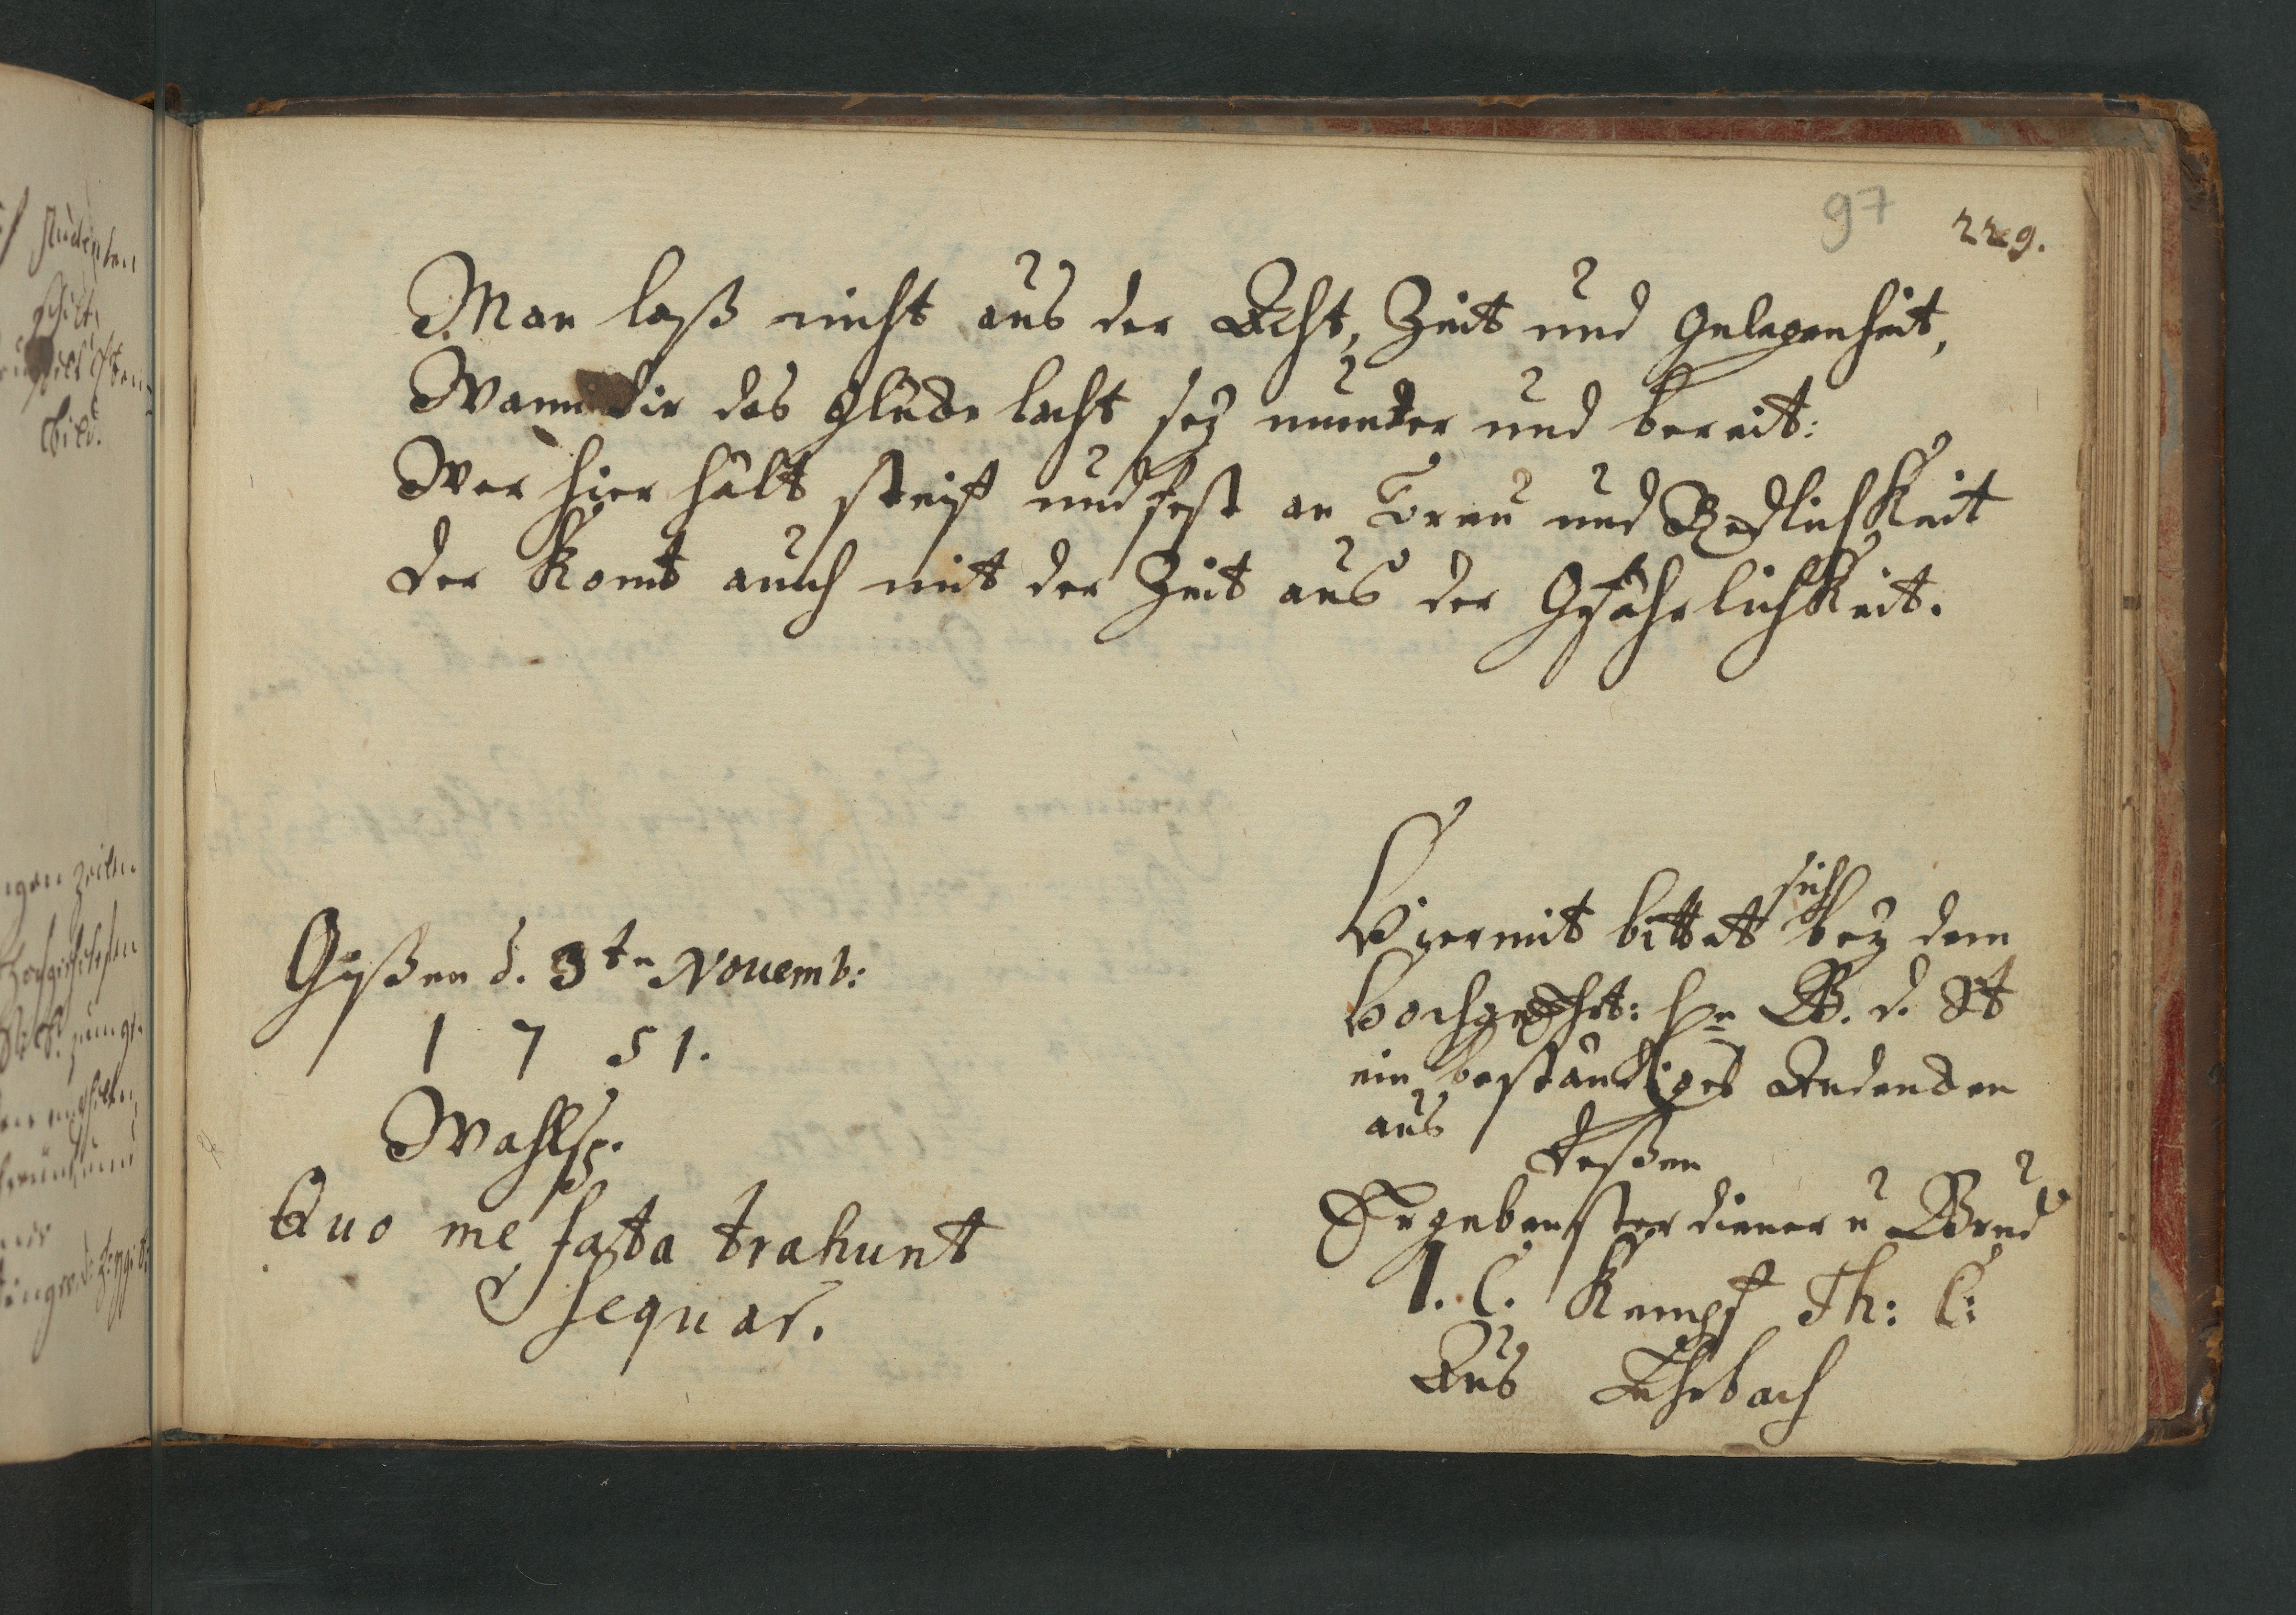 97 229.
Man laß nicht aus der Acht, Zeit und Gelegenheit,
Wann dir das Glücke lacht sey munter und bereit:
Wer hier hält steif und fest an Treu und Redlichkeit
der komt auch mit der Zeit aus der Gfährlichkeit.
Gießen d. 3te Novemb:
1 7 51.
Wahlsp.
Quo me fata trahunt
sequar.
Hiermit bittet sich bey dem
Hochgeehrt: H. B. d. St
ein beständiges Andencken
aus
deßen
Ergebenster diener u Brud
I. C. Kempf Th: C:
Aus Lehrbach